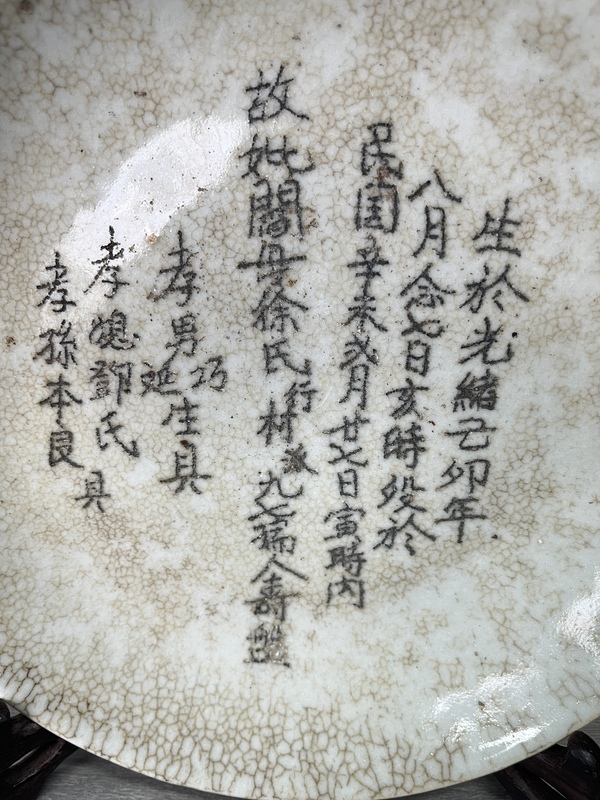 生於光緒己卯年
八月念七日亥時殁於
民国辛未弍月廿七日寅時内
故妣閻母徐氏行九七孺人壽盤
孝男巧延生具
孝媳鄧氏
孝孫本良具